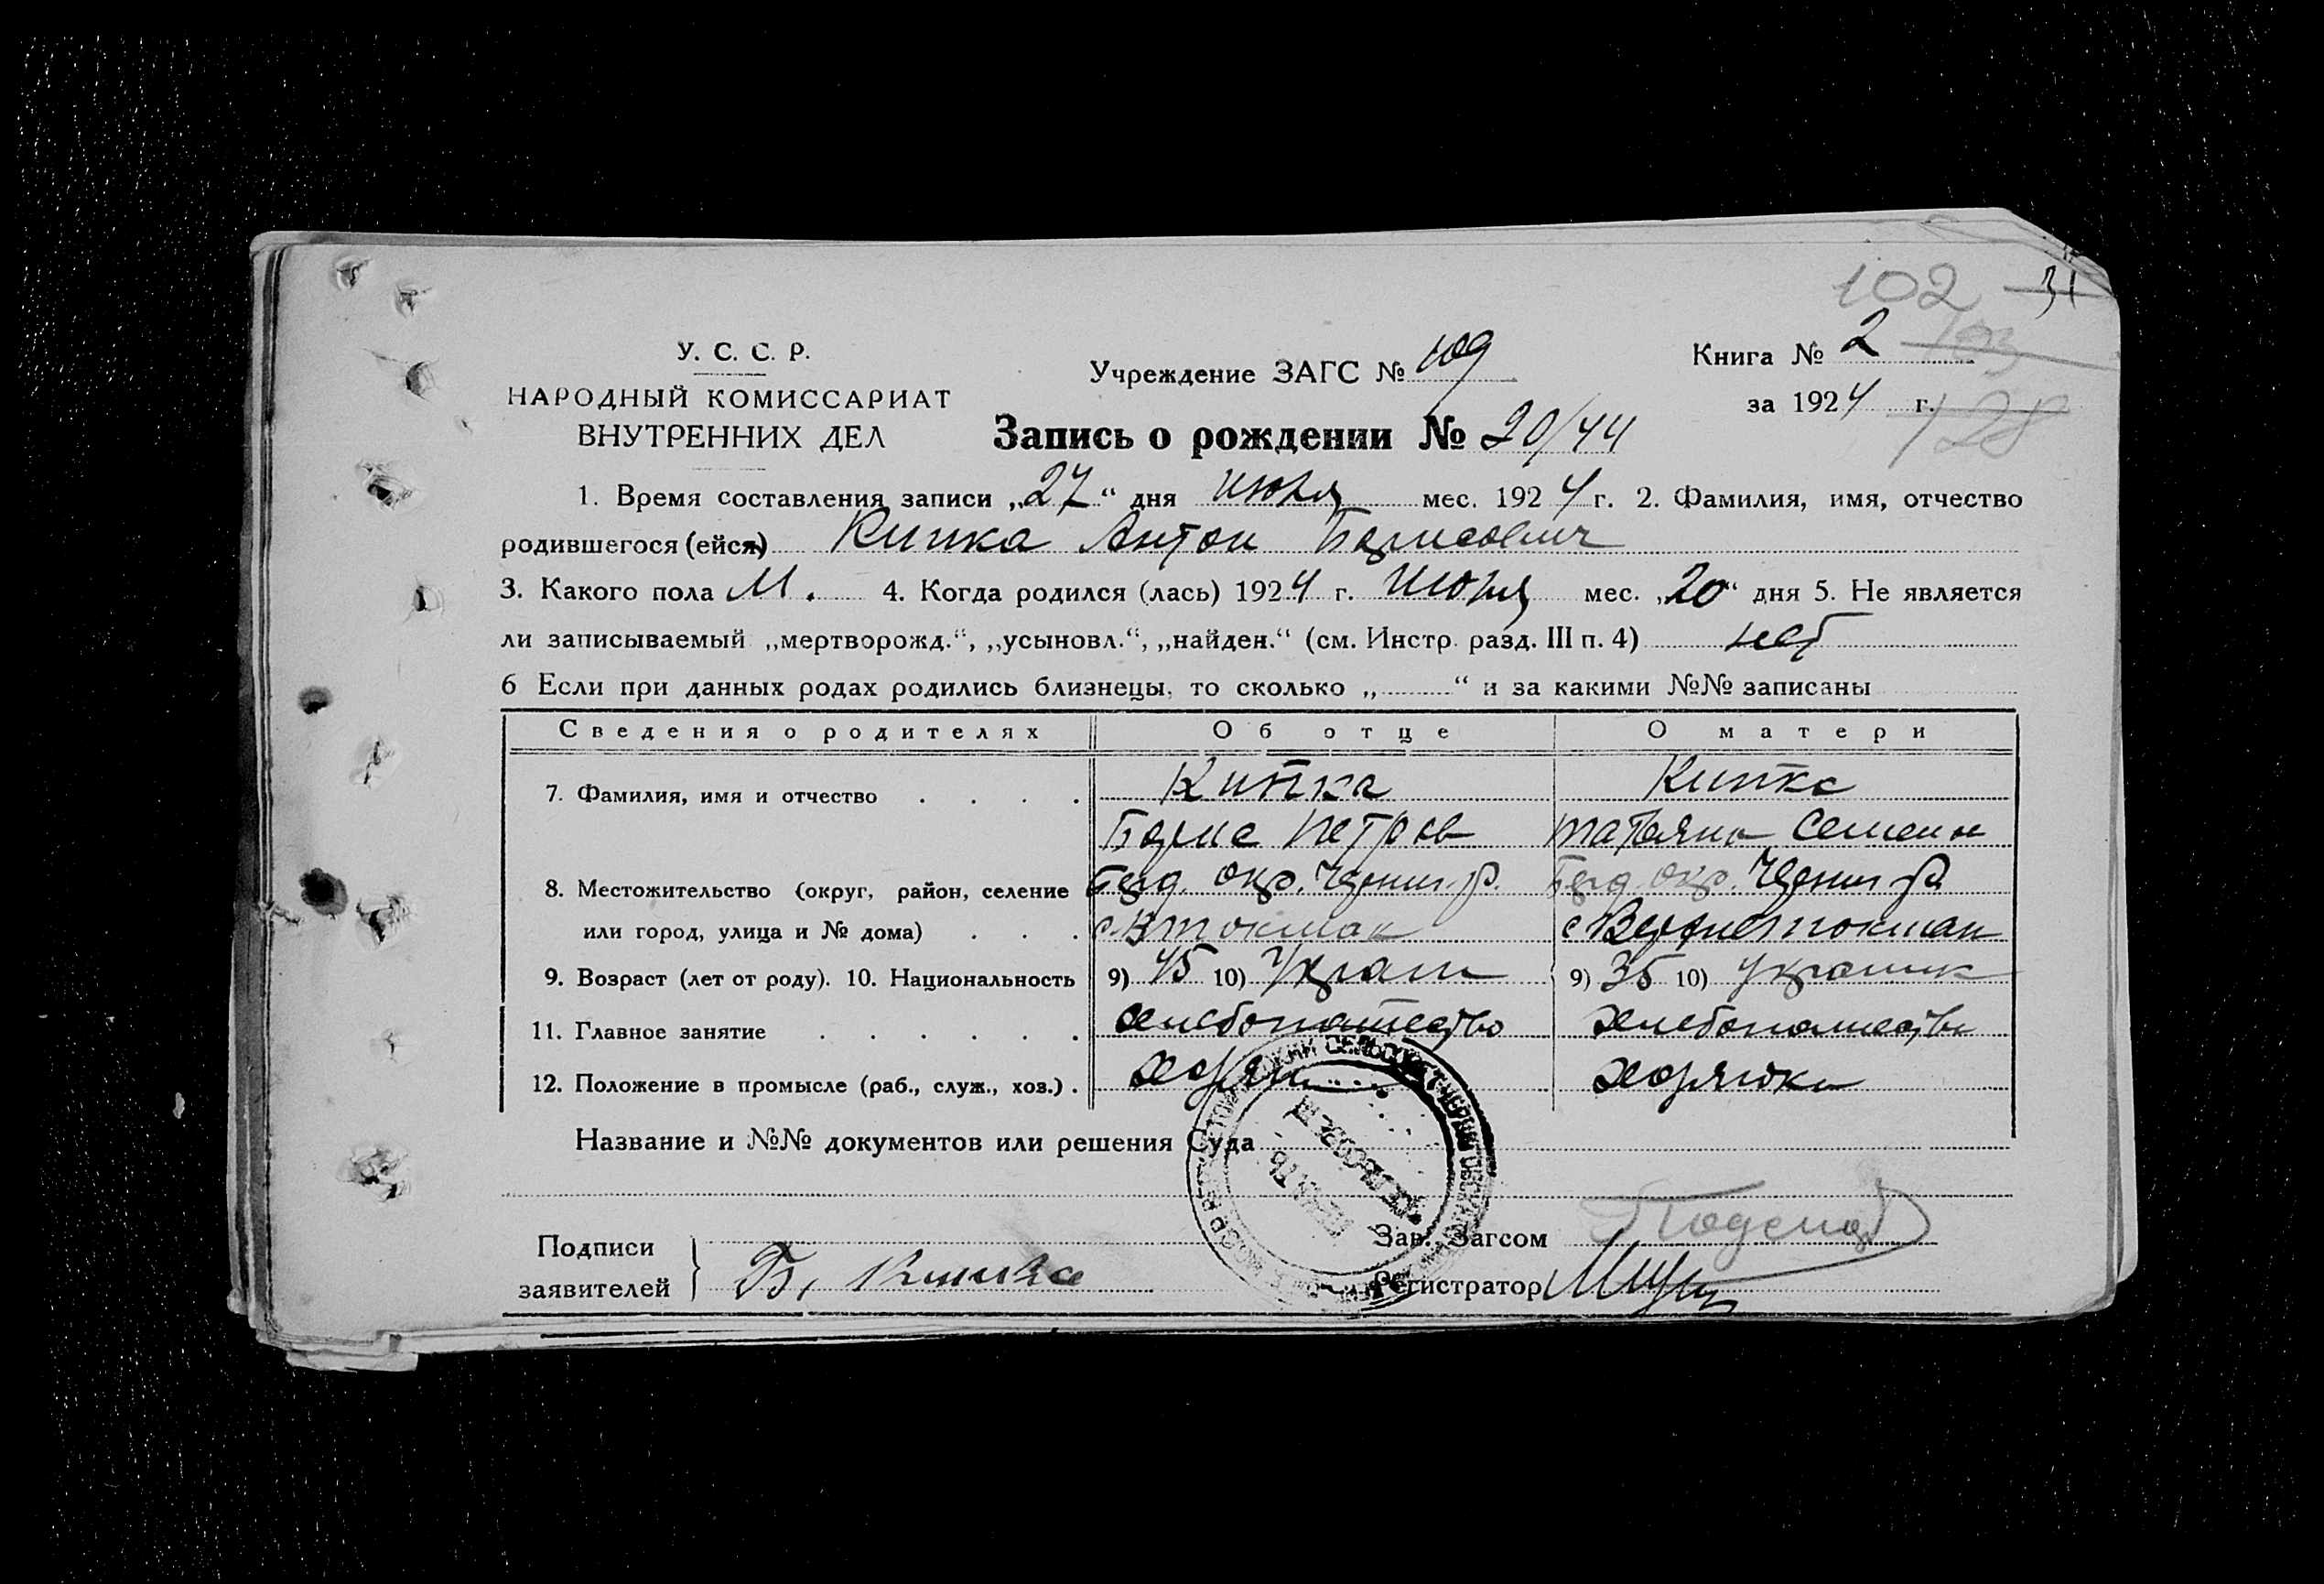 102 31
У. С. С. Р.
НАРОДНЫЙ КОМИССАРИАТ
ВНУТРЕННИХ ДЕЛ
Учреждение ЗАГС № 109
Книга № 2 103
за 1924 г. 128
Запись о рождении № 20/44
1. Время составления записи „27“ дня июля мес. 1924 г. 2. Фамилия, имя, отчество
родившегося (ейся) Кипка Антон Борисович
3. Какого пола М. 4. Когда родился (лась) 1924 г. Июля мес. „20“ дня 5. Не является
ли записываемый „мертворожд.“, „усыновл.“, „найден.“ (см. Инстр. разд. III п. 4) нет
6 Если при данных родах родились близнецы, то сколько „ “ и за какими №№ записаны
Сведения о родителях Об отце О матери
7. Фамилия, имя и отчество Кипка Кипка
Борис Петров Татьяна Семен
8. Местожительство (округ, район, селение Берд. окр. Черниг. р. Берд. окр. Черниг р.
или город, улица и № дома) с. В Токмак с Верхнетокмак
9. Возраст (лет от роду). 10. Национальность 9) 45 10) Украин 9) 35 10) Украинк
11. Главное занятие хлебопашество хлебопашество
12. Положение в промысле (раб., служ., хоз.)
Название и №№ документов или решения Суда
Подписи
заявителей Б. Кипка
Зав. Загсом
Регистратор